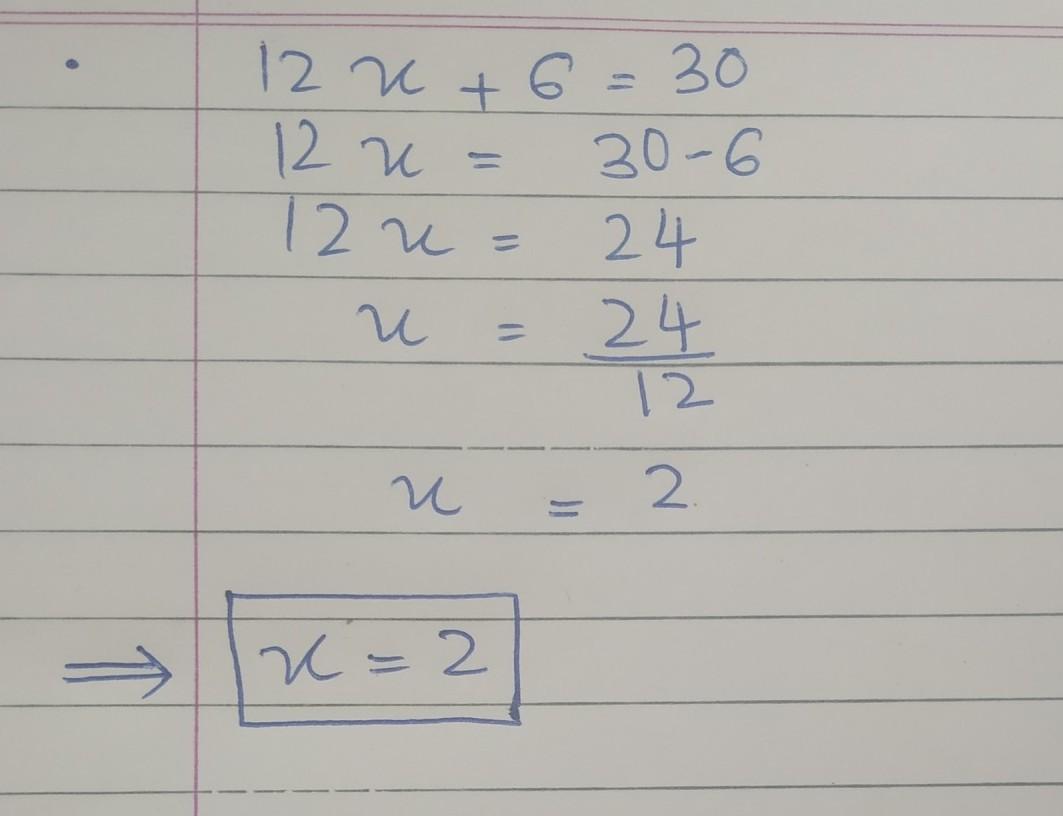 • 12 x + 6 = 30
12 x = 30 - 6
12 x = 24
x = 24
12
x = 2
⟹ x = 2